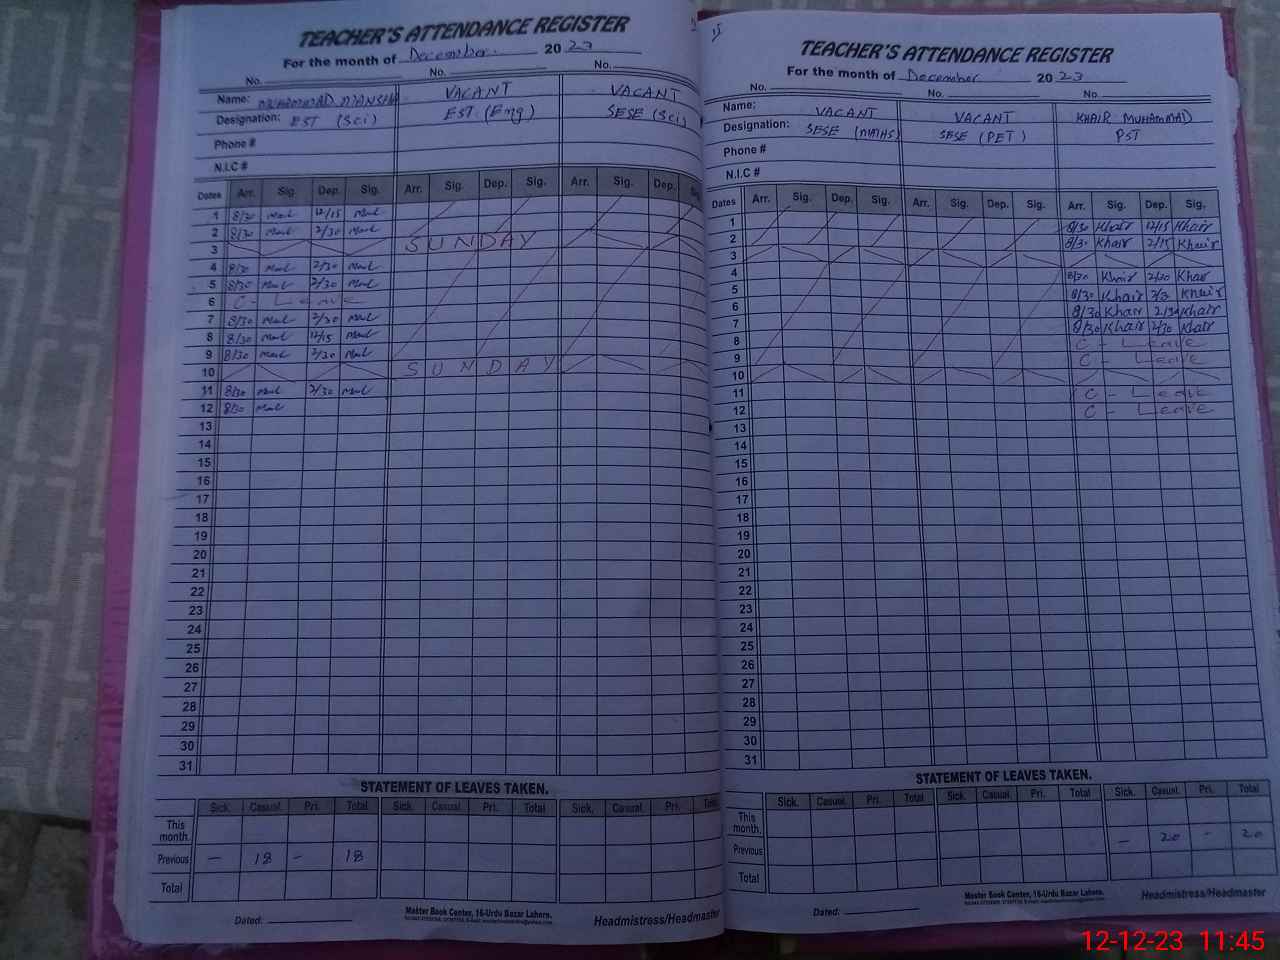 TEACHER'S ATTENDANCE REGISTER
For the month of December 2023
No. No. No.
Name: MUHAMMAD MANSHA VACANT VACANT
Designation: EST (Sci) EST (Eng) SESE (Sci)
Phone #
N.I.C #
Dates Arr. Sig. Dep. Sig. Arr. Sig. Dep. Sig. Arr. Sig. Dep.
1 8/30 12/15
2 8/30 2/30
3 SUNDAY
4 8/30 2/30
5 8/30 2/30
6 C - Leave
7 8/30 2/30
8 8/30 12/15
9 8/30 2/30
10 SUNDAY
11 8/30 2/30
12 8/30
13
14
15
16
17
18
19
20
21
22
23
24
25
26
27
28
29
30
31
STATEMENT OF LEAVES TAKEN.
Sick. Casual. Pri. Total Sick. Casual. Pri. Total Sick. Casual. Pri. Total
This month.
Previous — 18 - 18
Total
Dated:
Master Book Center, 16-Urdu Bazar Lahore.
Headmistress/Headmaster
15
TEACHER'S ATTENDANCE REGISTER
For the month of December 2023
No. No. No
Name: VACANT VACANT KHAIR MUHAMMAD
Designation: SESE (MATHS) SESE (PET) PST
Phone #
N.I.C #
Dates Arr. Sig. Dep. Sig. Arr. Sig. Dep. Sig. Arr. Sig. Dep. Sig.
1 8/30 Khair 12/15 Khair
2 8/30 Khair 2/15 Khair
3
4 8/30 Khair 2/30 Khair
5 8/30 Khair 2/3 Khair
6 8/30 Khair 2/30 Khair
7 8/30 Khair 2/30 Khair
8 C - Leave
9 C - Leave
10
11 C - Leave
12 C - Leave
13
14
15
16
17
18
19
20
21
22
23
24
25
26
27
28
29
30
31
STATEMENT OF LEAVES TAKEN.
Sick. Casual. Pri. Total Sick. Casual. Pri. Total Sick. Casual. Pri. Total
This month.
Previous — 20 - 20
Total
Dated:
Master Book Center, 16-Urdu Bazar Lahore.
Headmistress/Headmaster
12-12-23 11:45